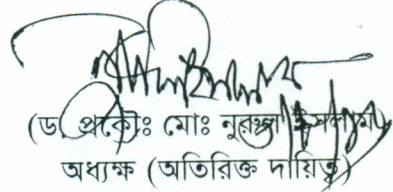 (ড. প্রকৌঃ মোঃ নুরুল ইসলাম)
অধ্যক্ষ (অতিরিক্ত দায়িত্ব)